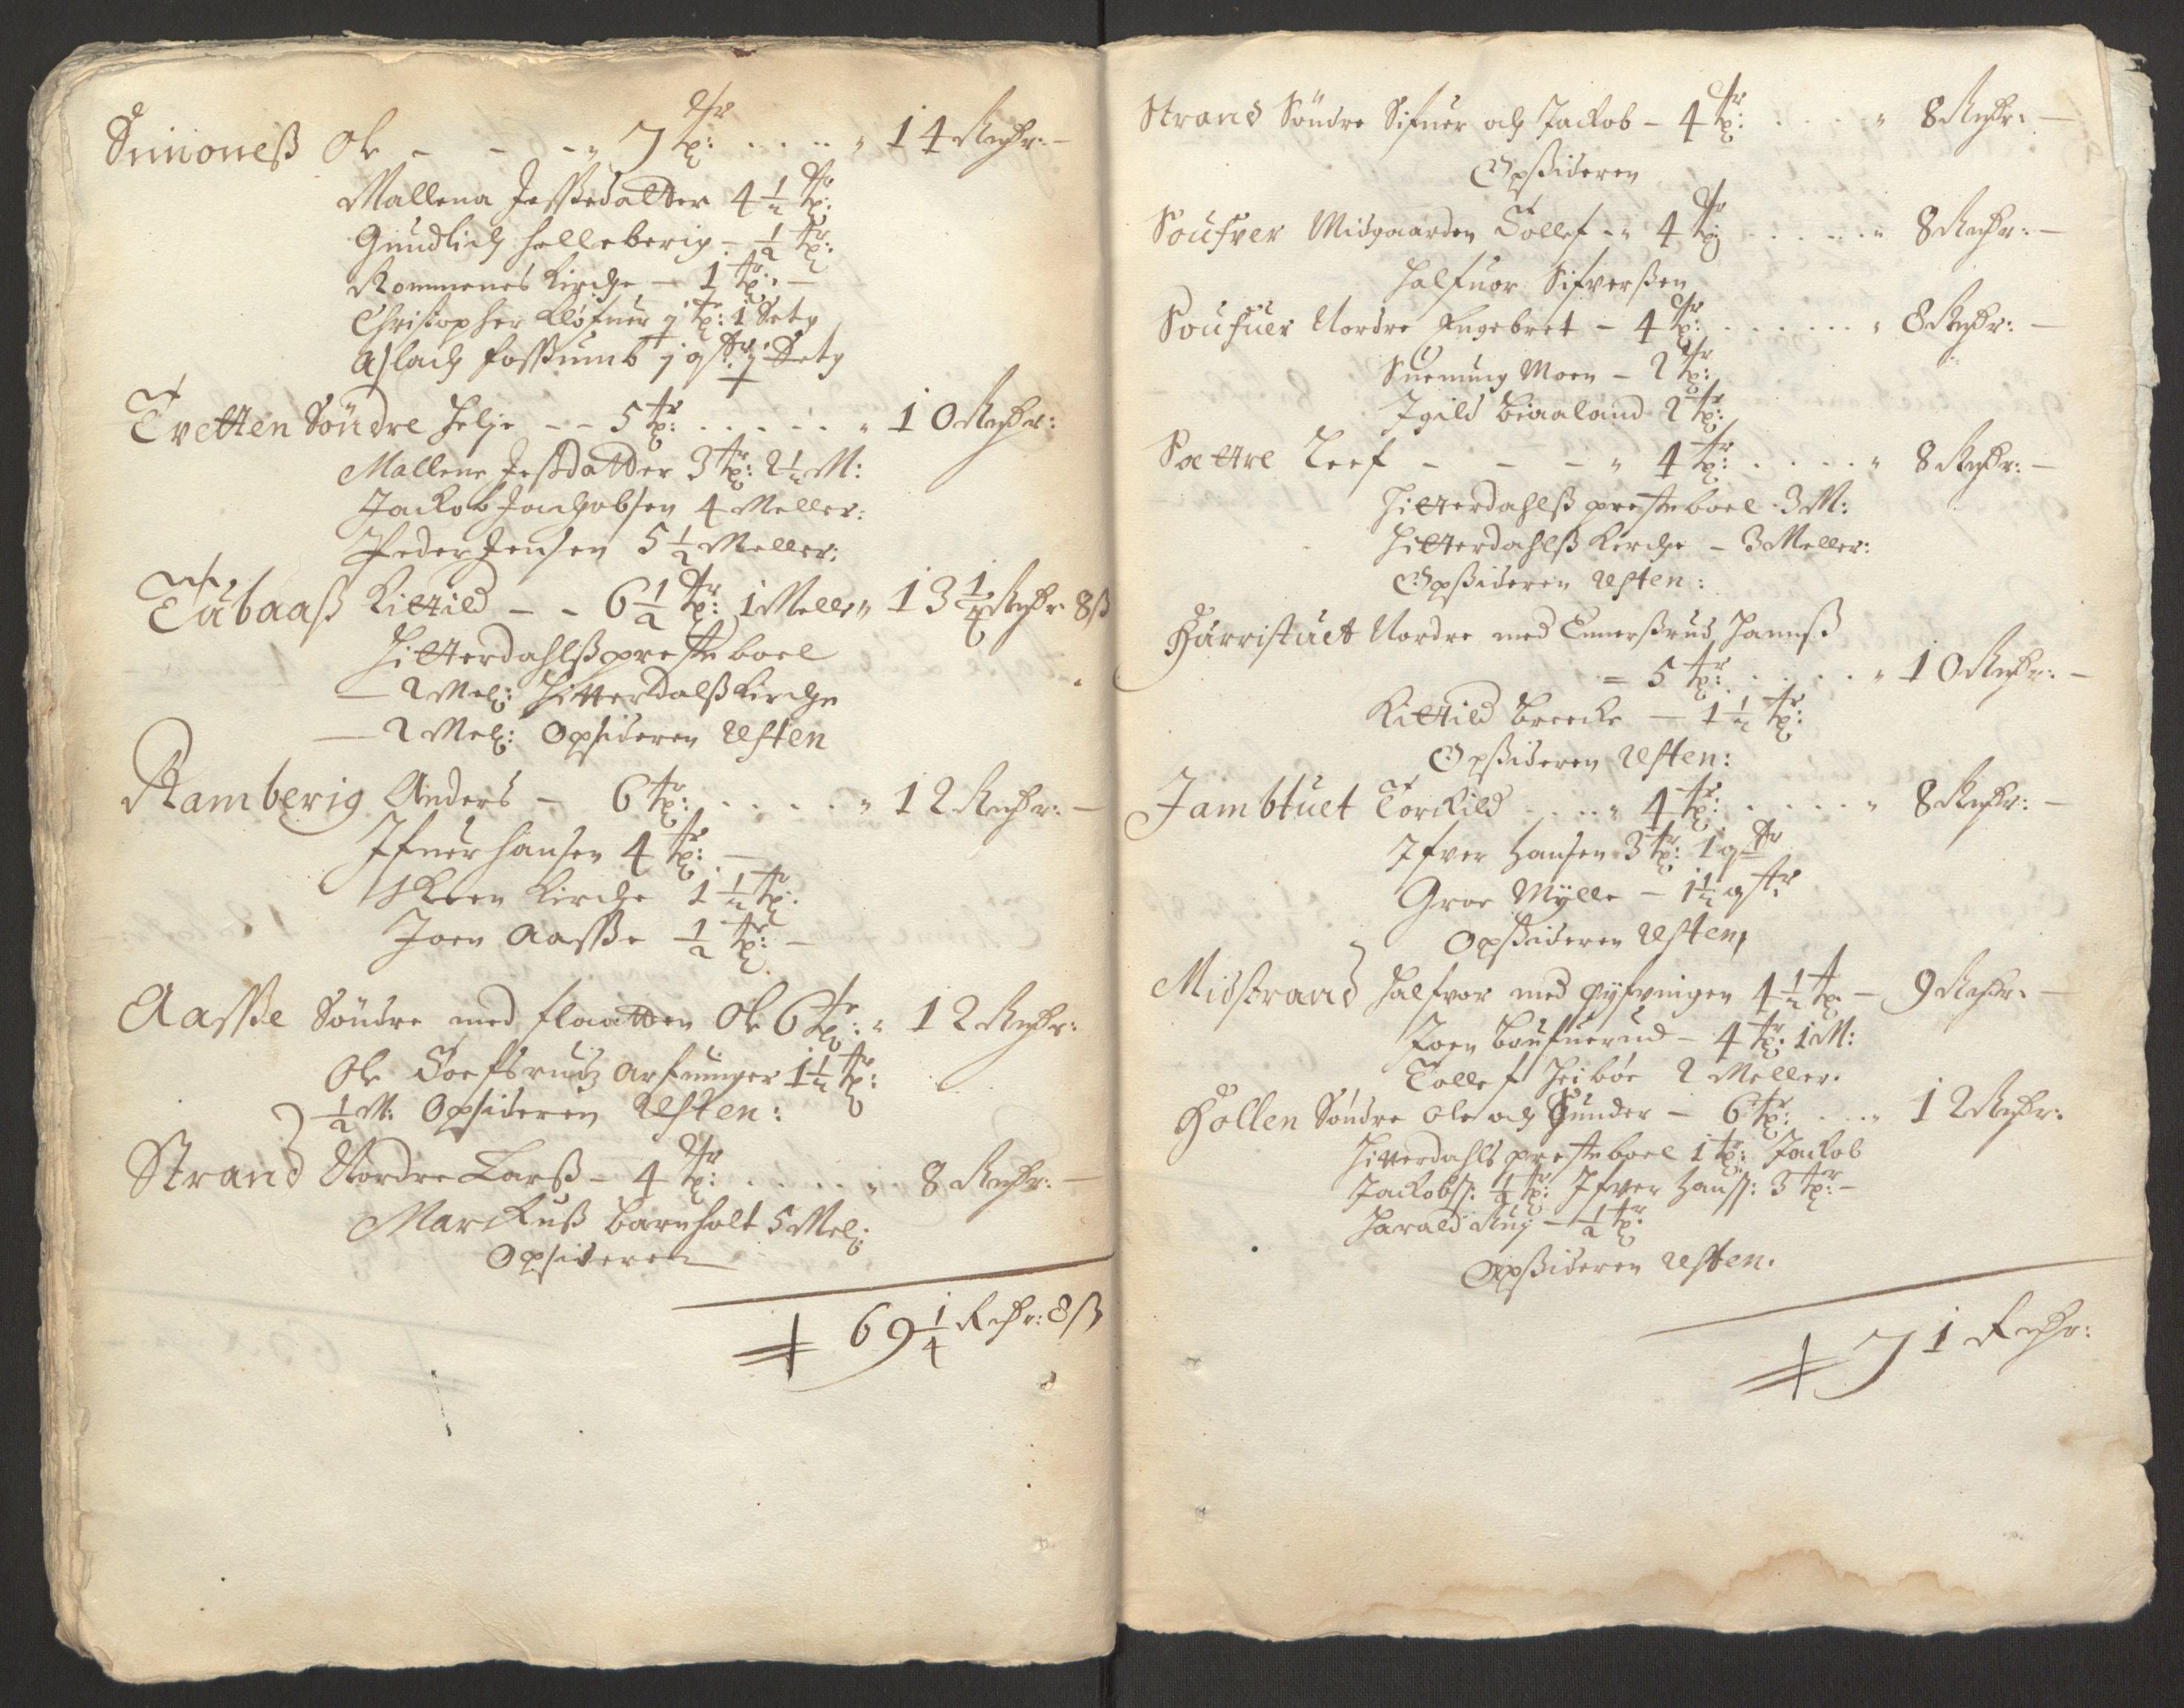 Simoneß Ole - - - „ 7 tpr: . . . . „ 14 Rdr: -
Mallena Jeßedatter 4 1/2 tpr:
Gundlich Helleberig - 1/2 tpr:
Rommenes Kirche - 1 tpr: -
Christopher Kløfuer j tpr: 1 Setg
Aslach Foßumb j q
Tvetten Söndre Helje - - 5 tpr: . . . . . „ 10 Rdr:
Mallene Jeßdatter 3 tpr: 2 1/2 M:
Jackob Jachobsen 4 Meller:
Peder Jensen 5 1/2 Meller:
Tübaaß Kittild - - 6 1/2 tpr: 1 Melle „ 13 1/4 Rdr 8 ß
Hitterdahlß presteboel
- 2 Mel: Hitterdalß Kirche
- 2 Mel: Opsideren Resten
Ramberig Anders - 6 tpr: . . . . . „ 12 Rdr: -
Ifuer Hansen 4 tpr: -
Skeen Kirche 1 1/2 tpr:
Joen Aaße 1/2 tpr: -
Aaße Söndre med flaatten Ole 6 tpr: „ 12 Rdr:
Ole Arfuinger 1 1/2 tpr:
1/2 M: Opsideren Resten:
Strand Nordre Larß - 4 tpr: . . . . . „ 8 Rdr: -
Marckuß Barnholt 5 Mel:
Opsideren
69 1/4 Rdr: 8 ß
Strand Söndre Sifuer och Jackob - 4 tpr: . . . . „ 8 Rdr: -
Opßideren
Soufver Midgaarden Tollef - „ 4 tpr . . . . . „ 8 Rdr: -
Halfuor Sifverßen
Soufuer Nordre Engebret - 4 tpr: . . . . . . „ 8 Rdr: -
Suenung Moen - 2 tpr:
Igild Biaaland 2 tpr:
Sættre Leef - - - „ 4 tpr: . . . . „ 8 Rdr: -
Hitterdahlß presteboel - 3 M:
Hitterdahlß Kirche - 3 Meller:
Opßideren Resten:
Hurristuet Nordre med Hannß
= 5 tpr: . . . . „ 10 Rdr: -
Kittild Brecke - 1 1/2 tpr:
Opßideren Resten:
Jambtuet Torkild . . . „ 4 tpr: . . . . . „ 8 Rdr: -
Ifver Hansen 3 tpr: 1 q
Groe Mÿlle - 1 1/2 q
Opßideren Resten,
Midstrand Halfvor med 4 1/2 tp: - 9 Rdr: -
Joen - 4 tpr: 1 M:
Tollef Heibøe 2 Meller.
Hollen Söndre Ole och Gunder - 6 tpr: . . . „ 12 Rdr:
Hitterdahls presteboel 1 tpr: Jackob
Jackobs: 1/2 tpr: Ifver Hanss: 3 tpr: -
Harald Rug - 1/2 tpr:
Opßideren Resten.
71 Rdr: